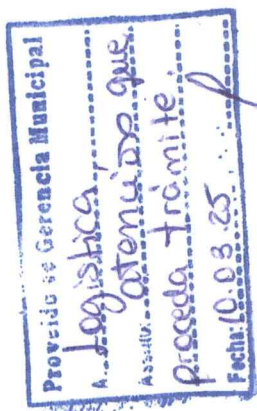 Proveído de Gerencia Municipal
A: Logística
Asunto: atención que
proceda trámite.
Fecha: 10.03.25